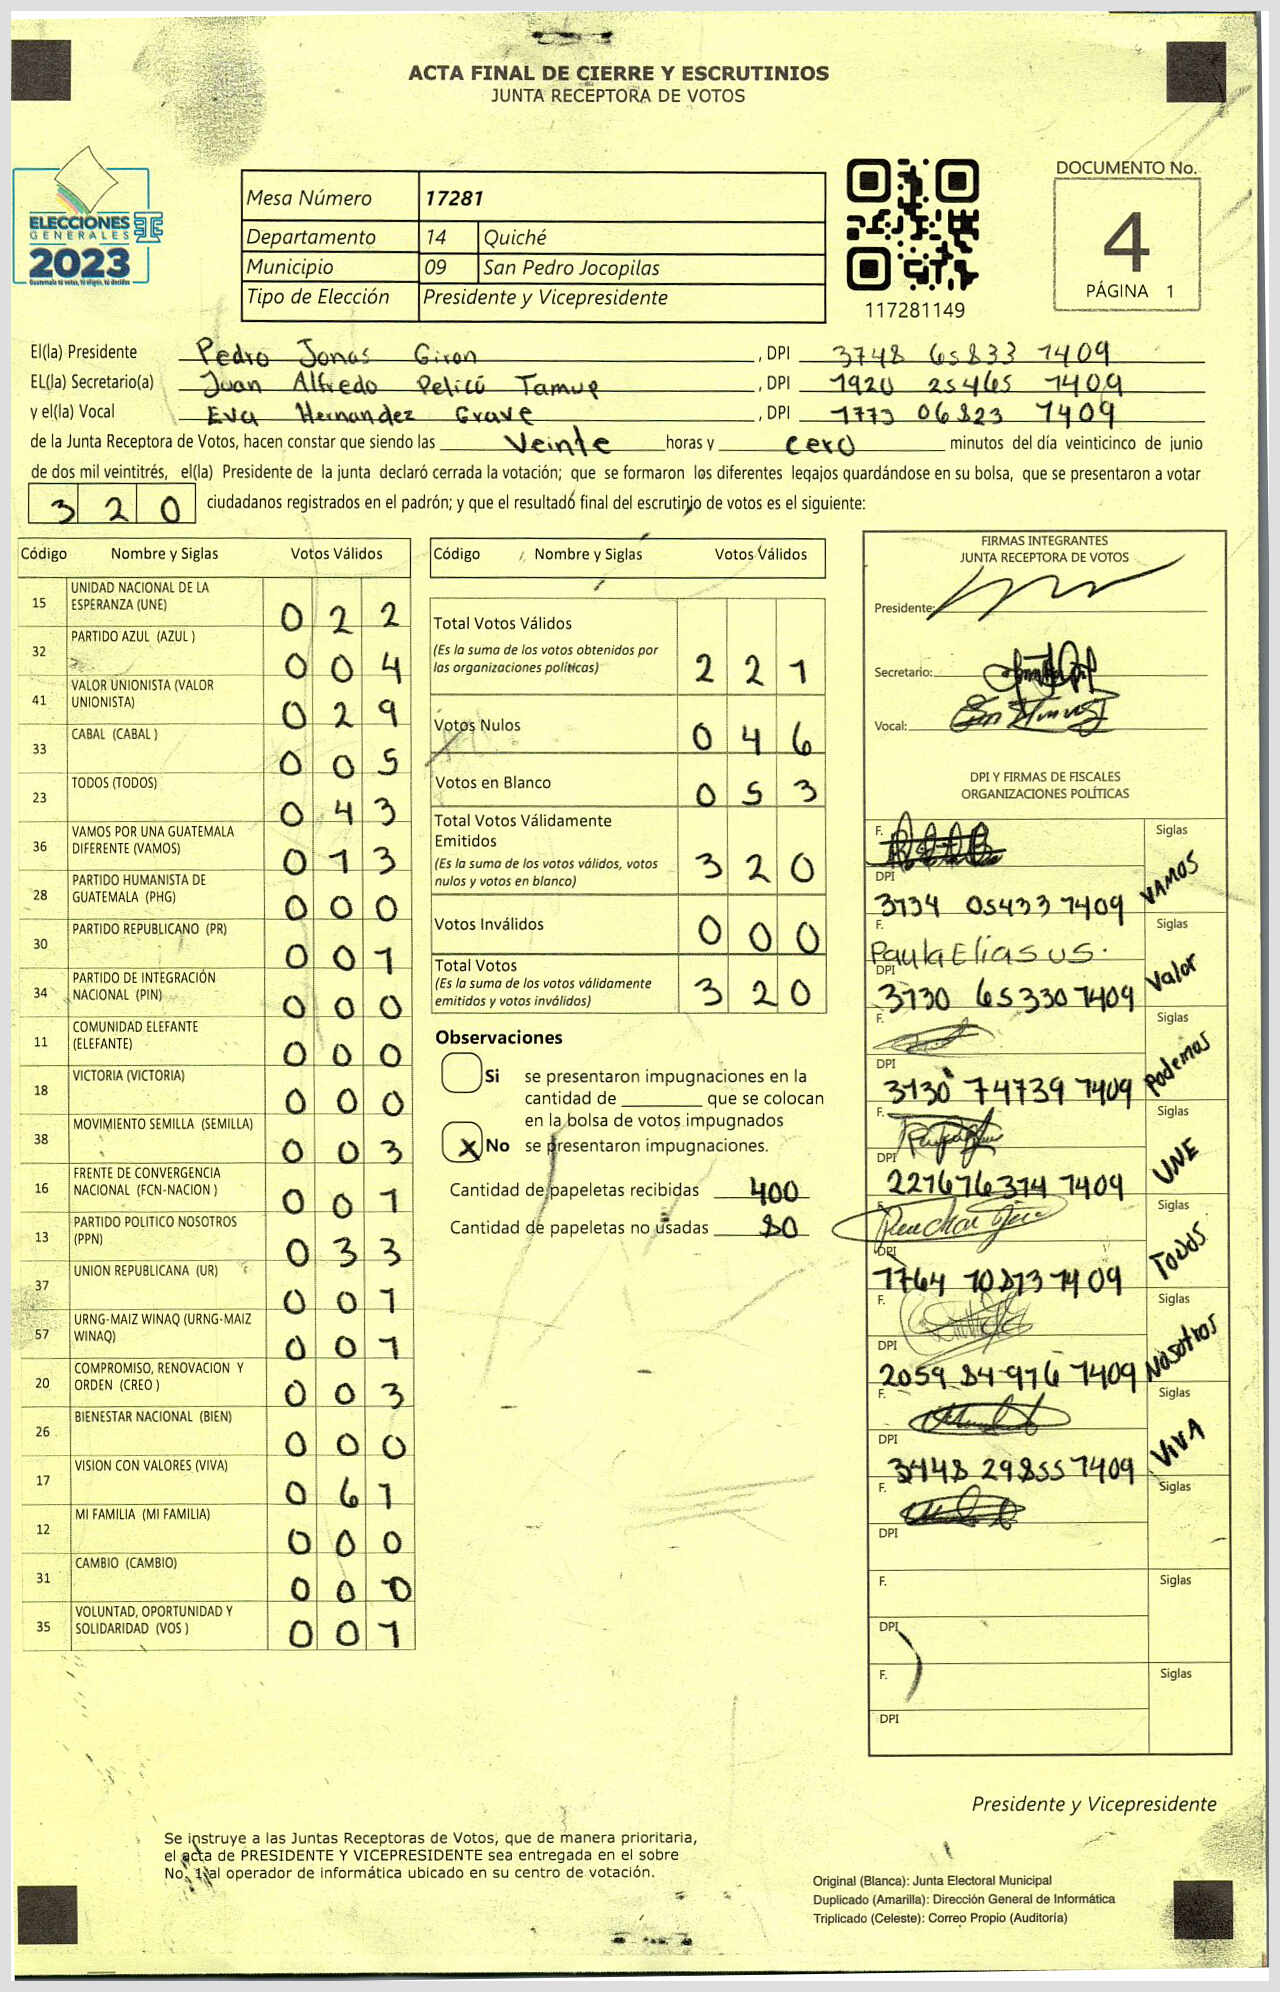 ACTA FINAL DE CIERRE Y ESCRUTINIOS
JUNTA RECEPTORA DE VOTOS
ELECCIONES
GENERALES
2023
Guatemala tú votas, tú eliges, tú decides
Mesa Número 17281
Departamento 14 Quiché
Municipio 09 San Pedro Jocopilas
Tipo de Elección Presidente y Vicepresidente
117281149
DOCUMENTO No.
4
PÁGINA 1
El(la) Presidente Pedro Jonas Giron , DPI 3748 65833 1409
EL(la) Secretario(a) Juan Alfredo Pelicó Tamup , DPI 1920 25465 1409
y el(la) Vocal Eva Hernandez Grave , DPI 1773 06823 1409
de la Junta Receptora de Votos, hacen constar que siendo las Veinte horas y cero minutos del día veinticinco de junio
de dos mil veintitrés, el(la) Presidente de la junta declaró cerrada la votación; que se formaron los diferentes legajos quardándose en su bolsa, que se presentaron a votar
320 ciudadanos registrados en el padrón; y que el resultado final del escrutinio de votos es el siguiente:
Código Nombre y Siglas Votos Válidos
15 UNIDAD NACIONAL DE LA ESPERANZA (UNE) 022
32 PARTIDO AZUL (AZUL ) 004
41 VALOR UNIONISTA (VALOR UNIONISTA) 029
33 CABAL (CABAL ) 005
23 TODOS (TODOS) 043
36 VAMOS POR UNA GUATEMALA DIFERENTE (VAMOS) 013
28 PARTIDO HUMANISTA DE GUATEMALA (PHG) 000
30 PARTIDO REPUBLICANO (PR) 001
34 PARTIDO DE INTEGRACIÓN NACIONAL (PIN) 000
11 COMUNIDAD ELEFANTE (ELEFANTE) 000
18 VICTORIA (VICTORIA) 000
38 MOVIMIENTO SEMILLA (SEMILLA) 003
16 FRENTE DE CONVERGENCIA NACIONAL (FCN-NACION ) 001
13 PARTIDO POLITICO NOSOTROS (PPN) 033
37 UNION REPUBLICANA (UR) 001
57 URNG-MAIZ WINAQ (URNG-MAIZ WINAQ) 001
20 COMPROMISO, RENOVACION Y ORDEN (CREO ) 003
26 BIENESTAR NACIONAL (BIEN) 000
17 VISION CON VALORES (VIVA) 061
12 MI FAMILIA (MI FAMILIA) 000
31 CAMBIO (CAMBIO) 000
35 VOLUNTAD, OPORTUNIDAD Y SOLIDARIDAD (VOS ) 001
Código Nombre y Siglas Votos Válidos
Total Votos Válidos
(Es la suma de los votos obtenidos por
las organizaciones políticas) 221
Votos Nulos 046
Votos en Blanco 053
Total Votos Válidamente
Emitidos
(Es la suma de los votos válidos, votos
nulos y votos en blanco) 320
Votos Inválidos 000
Total Votos
(Es la suma de los votos válidamente
emitidos y votos inválidos) 320
Observaciones
Si se presentaron impugnaciones en la
cantidad de que se colocan
en la bolsa de votos impugnados
x No se presentaron impugnaciones.
Cantidad de papeletas recibidas 400
Cantidad de papeletas no usadas 80
FIRMAS INTEGRANTES
JUNTA RECEPTORA DE VOTOS
Presidente:
Secretario:
Vocal:
DPI Y FIRMAS DE FISCALES
ORGANIZACIONES POLÍTICAS
F. Siglas
DPI VAMOS
3134 05433 1409
F. Siglas
Paula Elias us.
DPI Valor
3130 65330 1409
F. Siglas
DPI Podemos
3130 74739 1409
F. Siglas
DPI UNE
2216 76314 1409
F. Siglas
DPI TODOS
1764 10813 1409
F. Siglas
DPI Nosotros
2059 84976 1409
F. Siglas
DPI VIVA
3448 29855 1409
F. Siglas
DPI
F. Siglas
DPI
F. Siglas
DPI
Presidente y Vicepresidente
Se instruye a las Juntas Receptoras de Votos, que de manera prioritaria,
el acta de PRESIDENTE Y VICEPRESIDENTE sea entregada en el sobre
No. 1 al operador de informática ubicado en su centro de votación.
Original (Blanca): Junta Electoral Municipal
Duplicado (Amarilla): Dirección General de Informática
Triplicado (Celeste): Correo Propio (Auditoría)